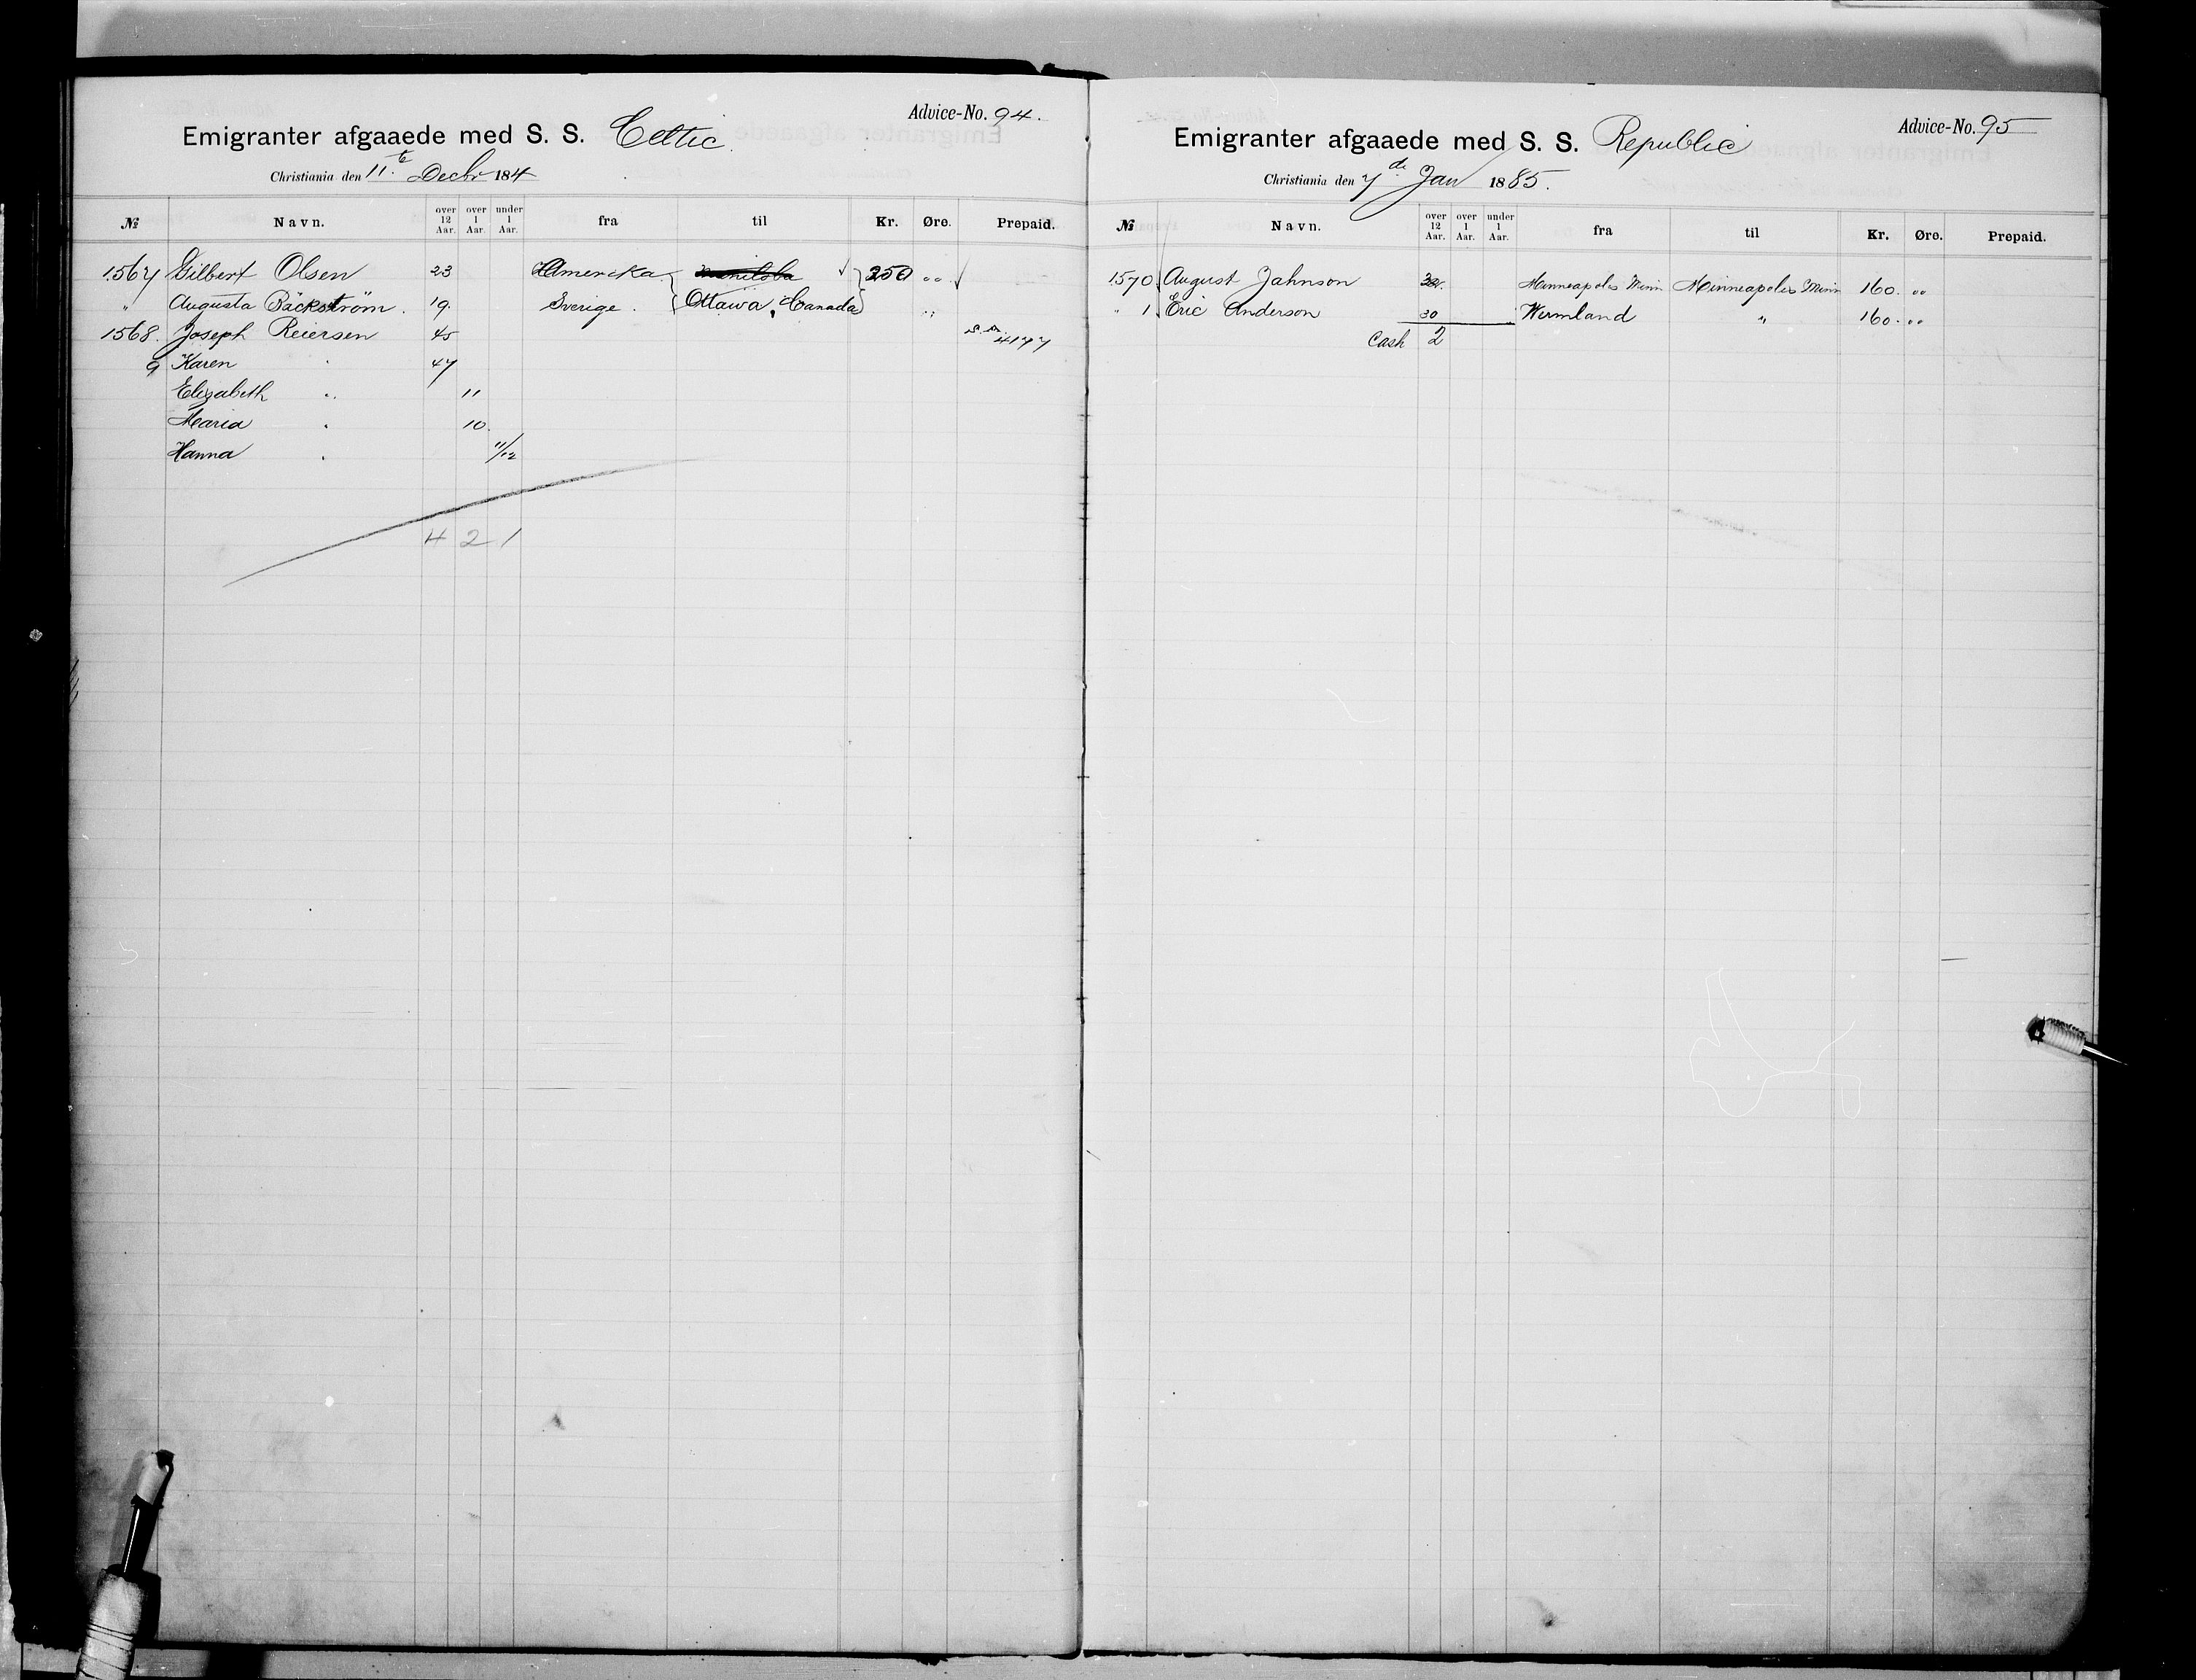 Advice-No. 94.
Emigranter afgaaede med S. S. Celtic
Christiania den 11.te Decbr 184
№ Navn. over 12 Aar. over 1 Aar. under 1 Aar. fra til Kr. Øre. Prepaid.
1567 Gilbert Olsen 23 Amerika 250 " "
" Augusta Bäckström. 19. Sverige. Ottawa, Canada "
1568. Joseph Reiersen 45 4177
9 Karen " 47
Elizabeth " 11
Maria " 10.
Hanna " 11/12
4 2 1
Advice-No. 95
Emigranter afgaaede med S. S. Republic
Christiania den 7de Jan 1885.
№ Navn. over 12 Aar. over 1 Aar. under 1 Aar. fra til Kr. Øre. Prepaid.
1570 August Johnson Minneapolis Minn Minneapolis Minn 160. "
" 1 Eric Anderson 30 Wermland " 160. "
Cash 2